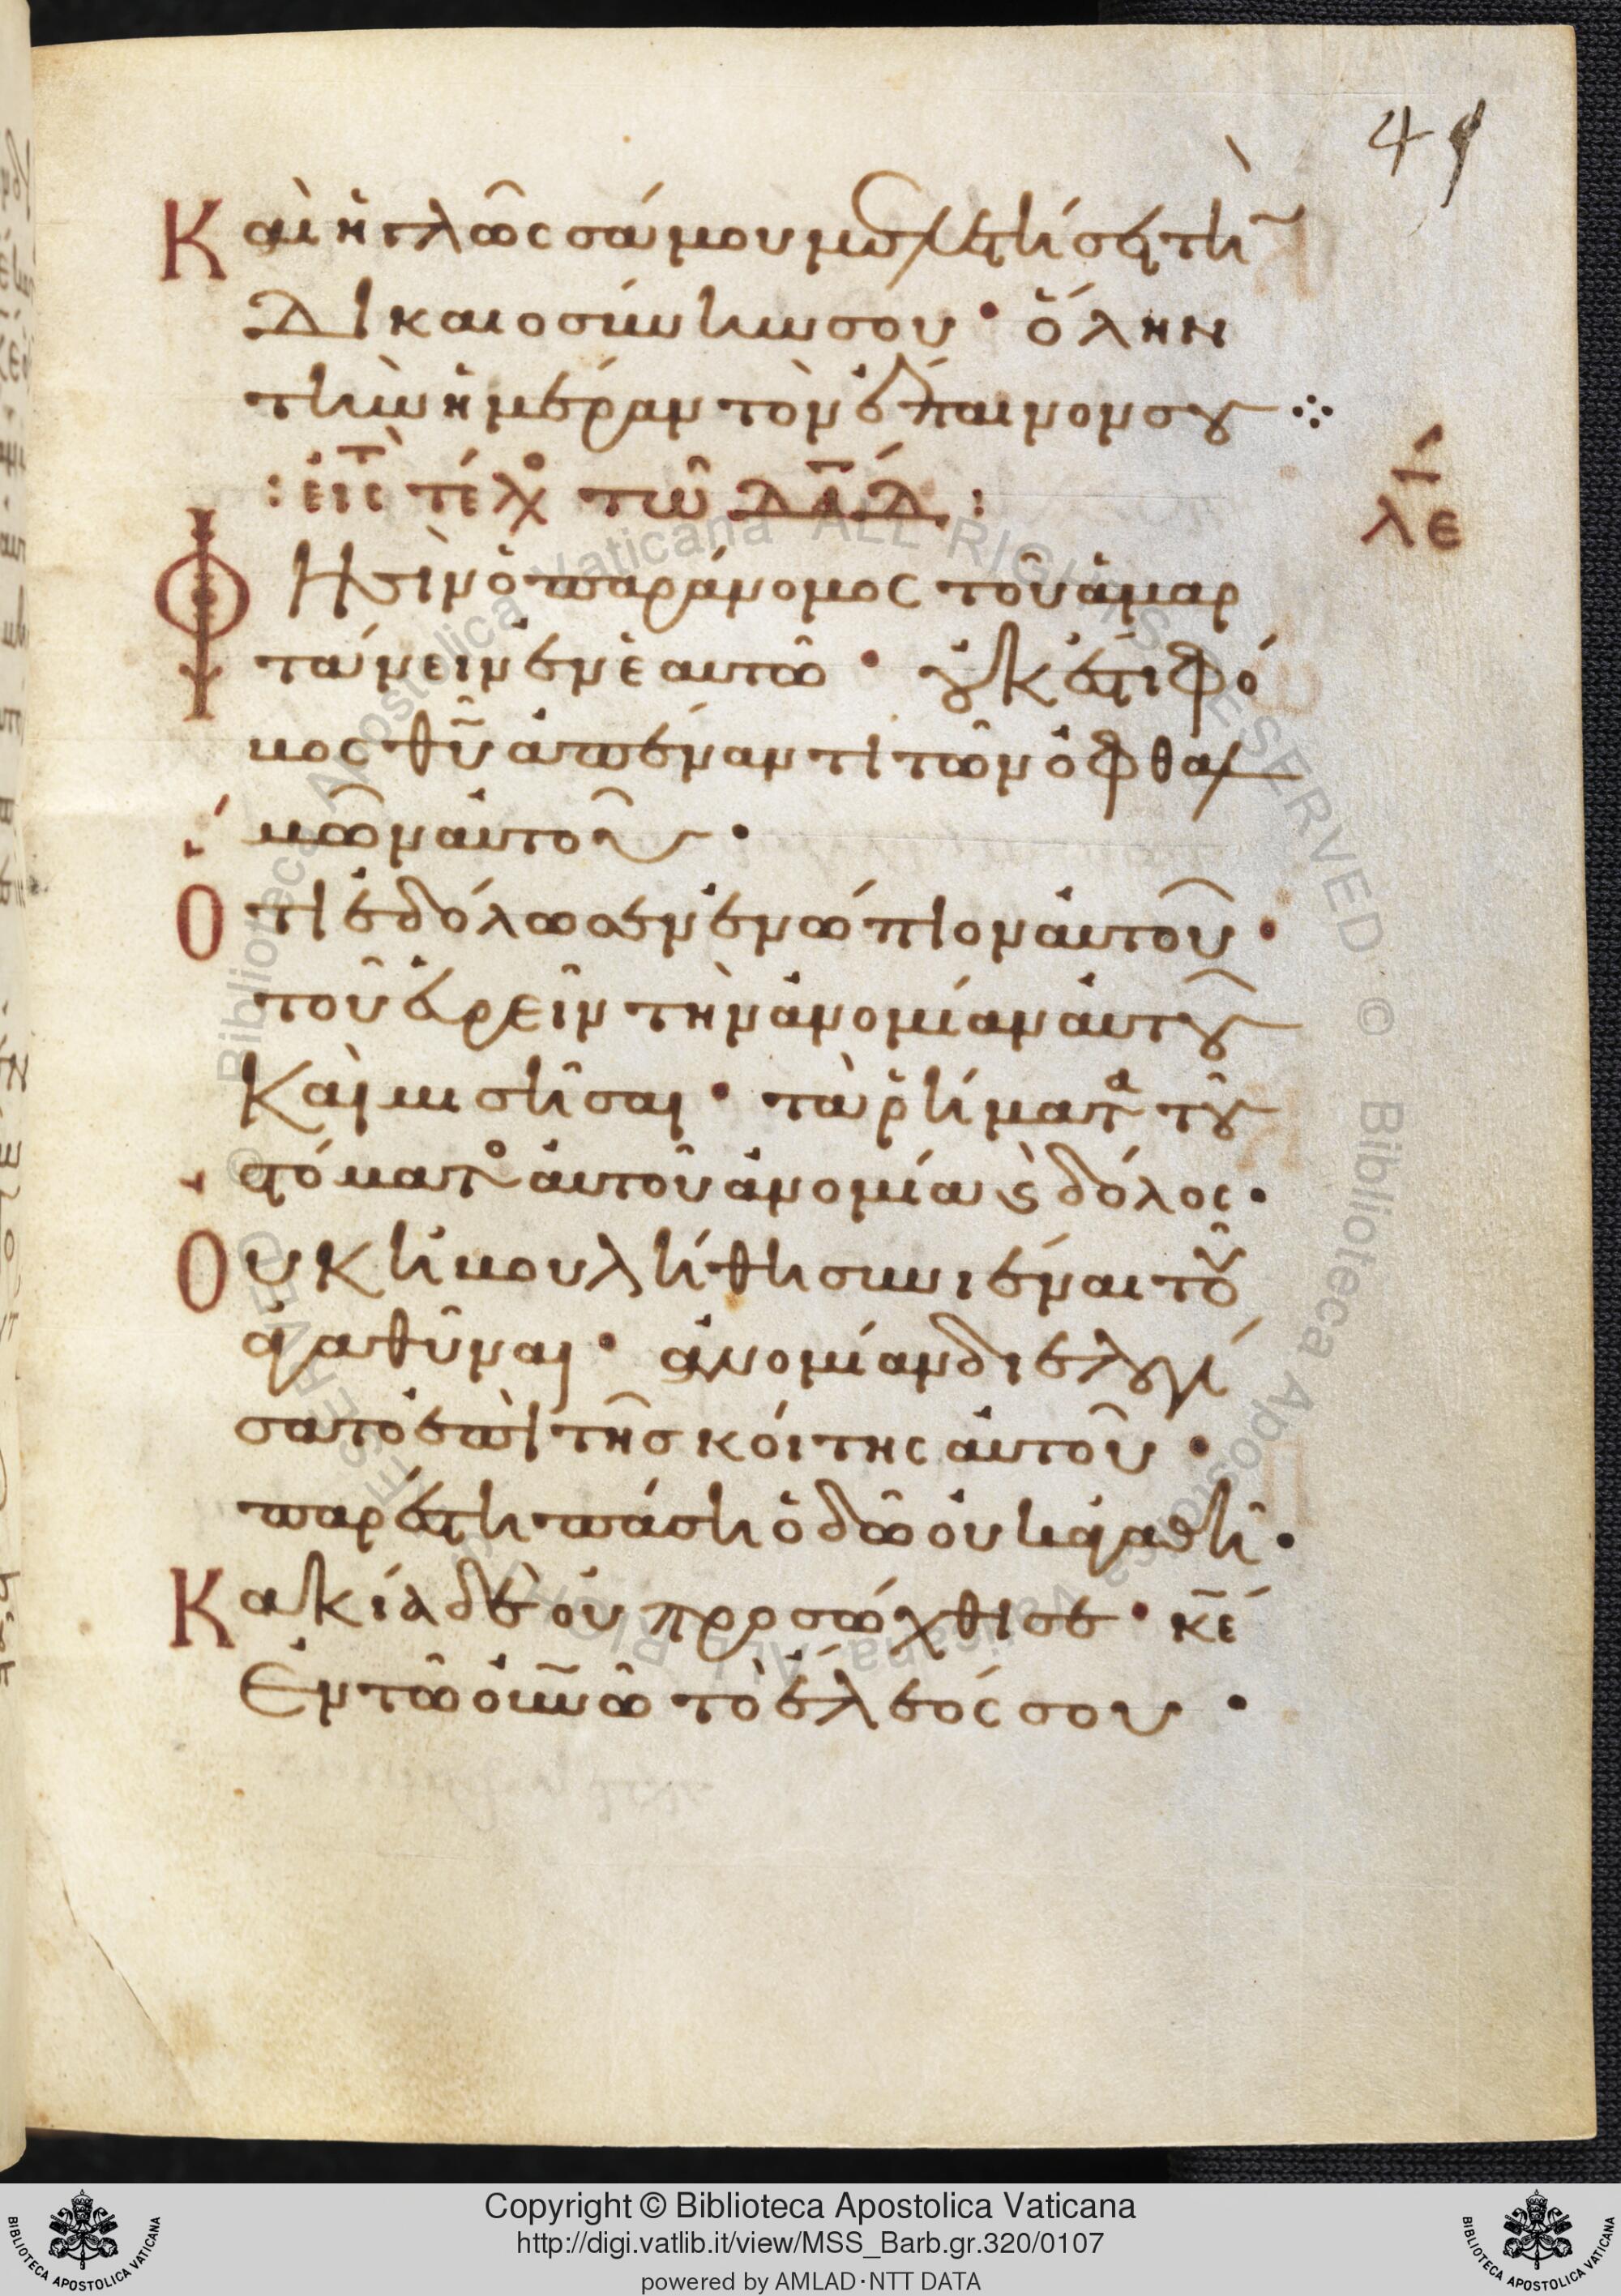 49
Καὶ ἡ γλῶσσά μου μελετήσει τὴν
δικαιοσύνην σου· ὅλην
τὴν ἡμέραν τὸν ἔπαινόν σου ⁘
: εἰς τ τέλ τῶ δᾱδ :
λε
Φησὶν ὁ παράνομος τοῦ ἁμαρ
τάνειν ἐν ἑαυτῶ· οὐκ ἔστι φό
βος θῡ ἀπέναντι τῶν ὀφθαλ
μῶν αὐτοῦ·
Ὅτι ἐδόλωσεν ἐνώπιον αὐτοῦ·
τοῦ εὑρεῖν τὴν ἀνομίαν αὐτοῦ
καὶ μισῆσαι· τὰ ῥήματα τοῦ
στόματος αὐτοῦ ἀνομία ϗ δόλος·
Οὐκ ἠβουλήθη συνιέναι τοῦ
ἀγαθῦναι· ἀνομίαν διελογί
σατο ἐπὶ τῆς κοίτης αὐτοῦ·
παρέστη πάση ὁδῶ οὐκ ἀγαθῆ·
Κακία δὲ οὐ προσώχθισε· κ̄ε
ἐν τῶ οὐνῶ τὸ ἔλεός σου·
Copyright © Biblioteca Apostolica Vaticana
http://digi.vatlib.it/view/MSS_Barb.gr.320/0107
powered by AMLAD·NTT DATA
BIBLIOTECA APOSTOLICA VATICANA
BIBLIOTECA APOSTOLICA VATICANA